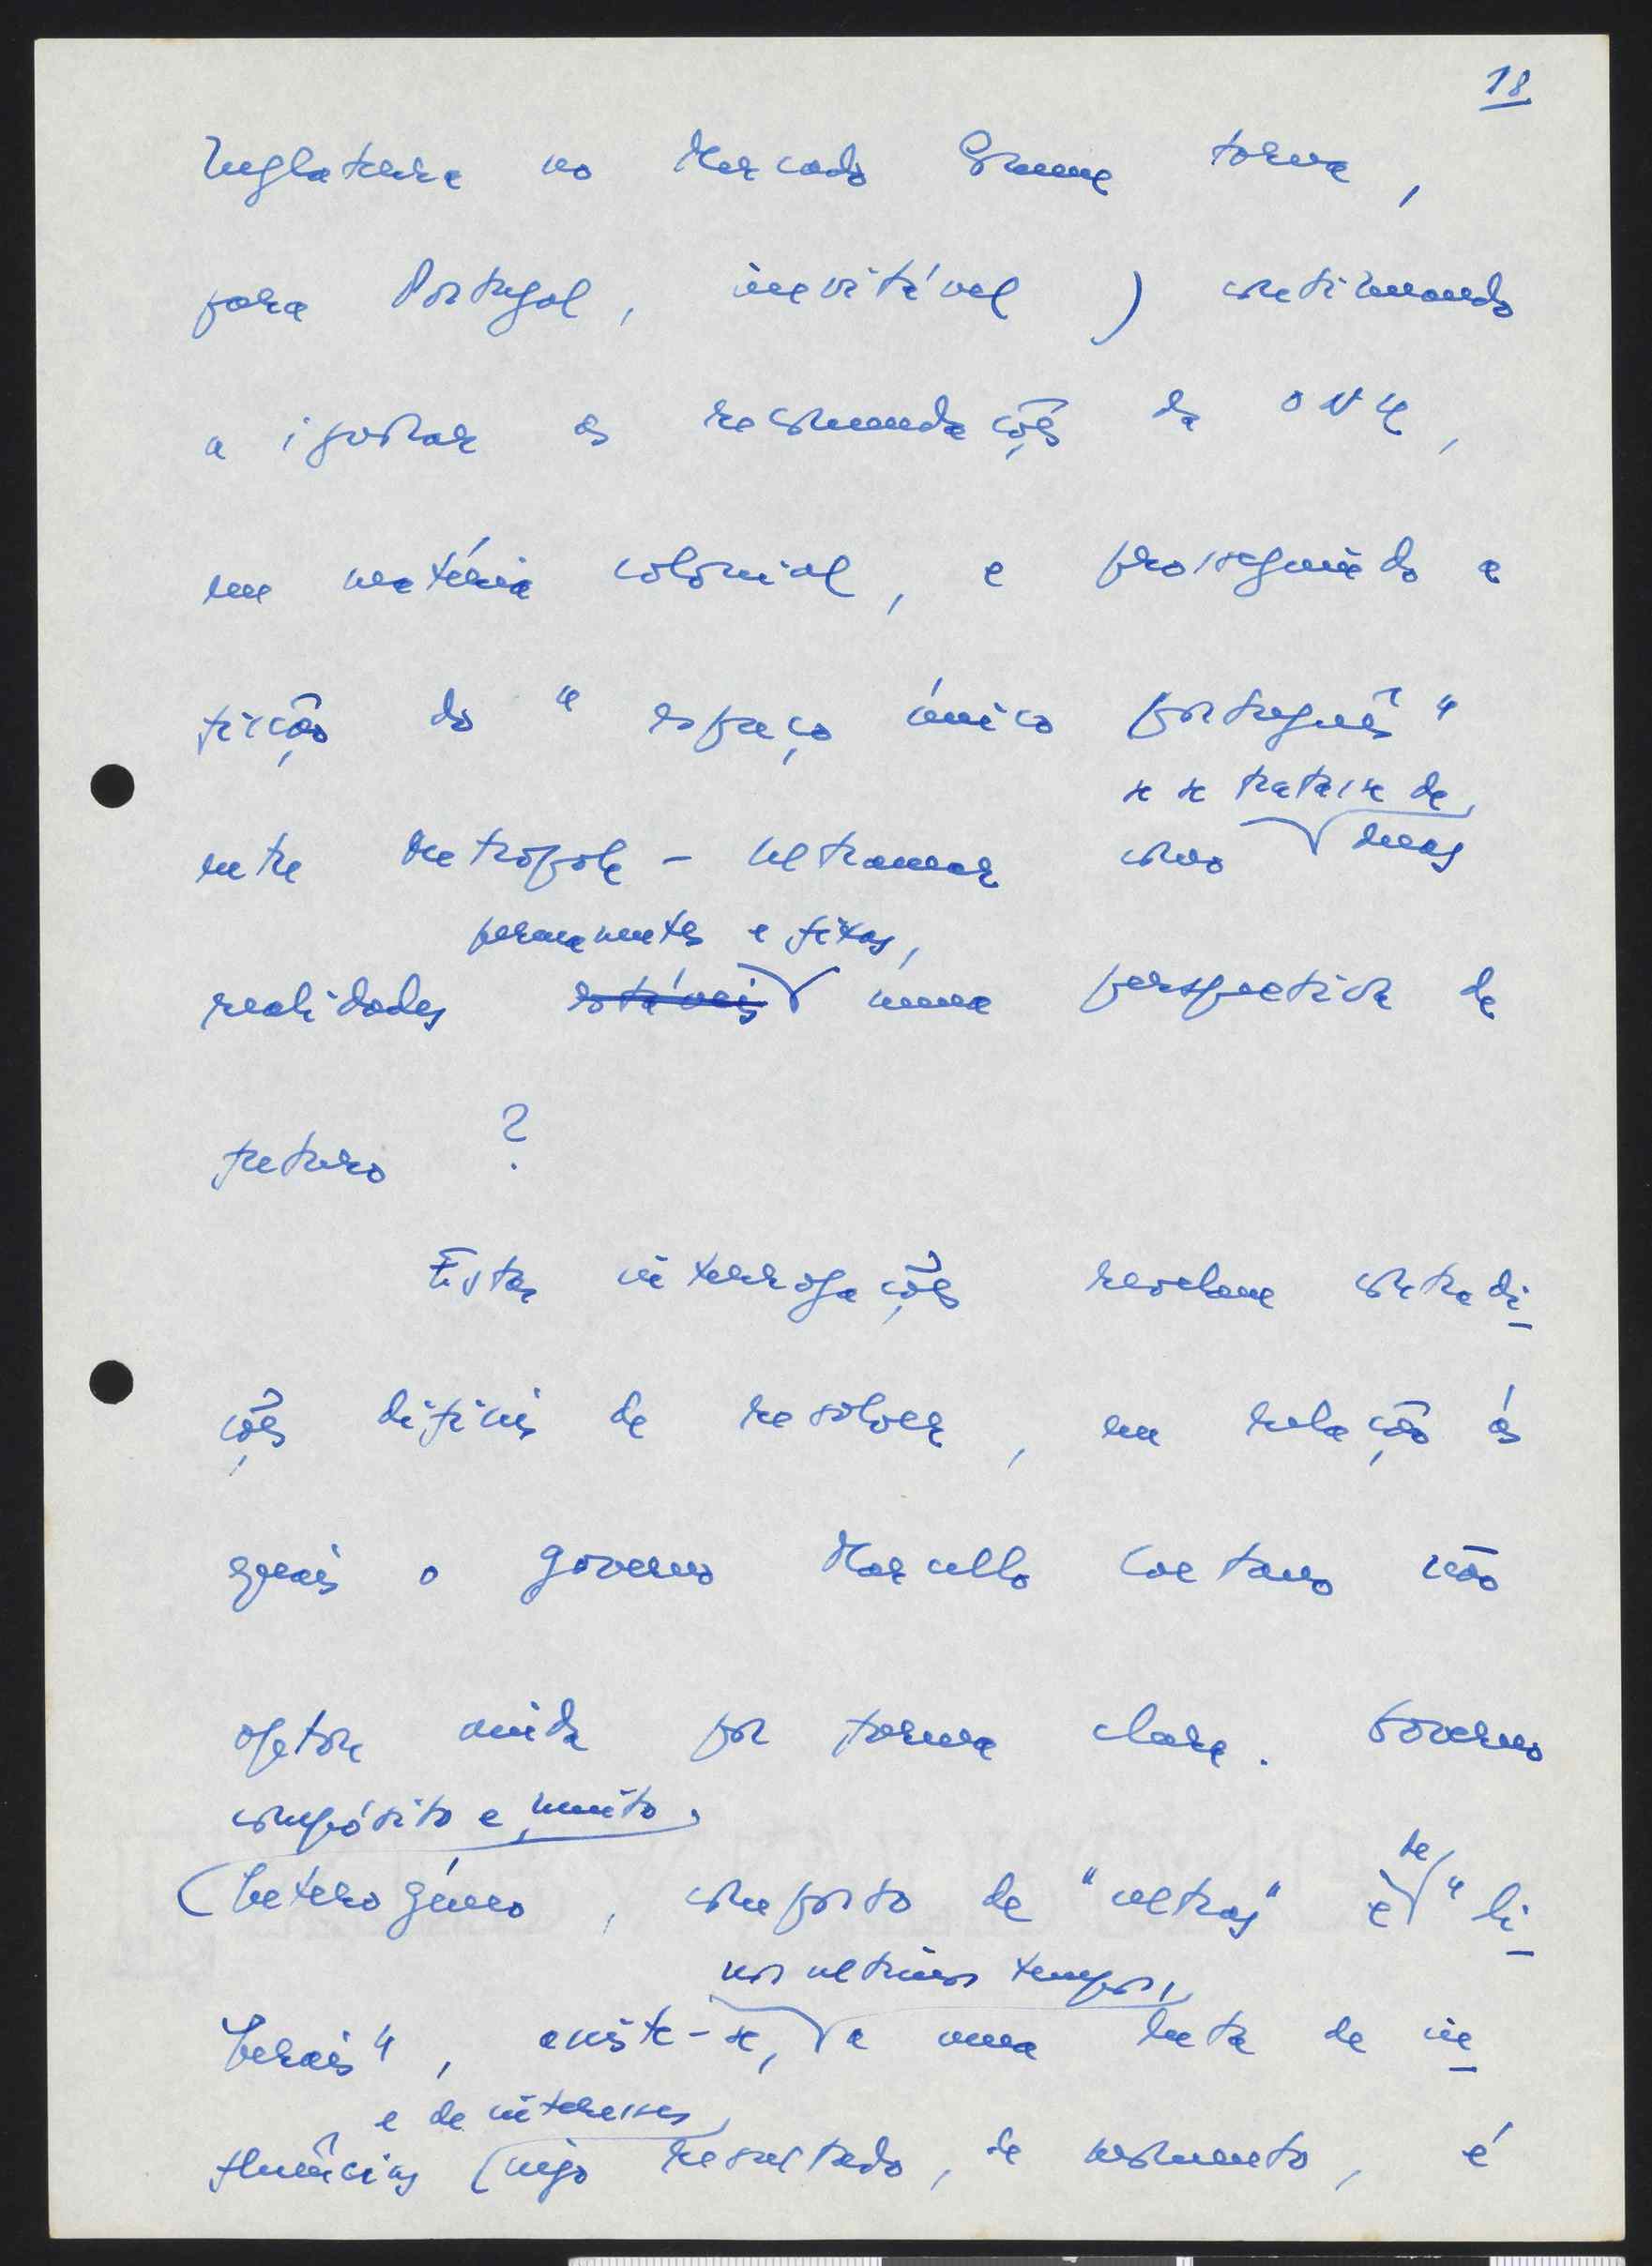 18
Inglaterra no Mercado Comum torna,
para Portugal, inevitável) continuando
a ignorar as recomendações da ONU,
em matéria colonial, e prosseguindo a
ficção do "espaço único português"
se se tratasse de
entre Metrópole - Ultramar como duas
permanentes e fixas,
realidades estáveis numa perspectiva de
futuro ?
Estas interrogações revelam contradi
ções difíceis de resolver, em relação às
quais o governo Marcello Caetano não
optou ainda por forma clara. Governo
compósito e muito
heterogéneo, composto de "ultras" e "li
de
berais", assiste-se, a uma luta de in
nos ultimos tempos,
e de interesses
fluências cujo resultado, de momento, é